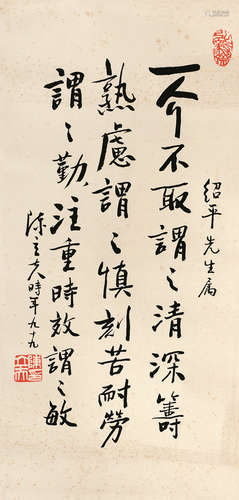 一介不取謂之清深籌
熟慮謂之慎刻苦耐勞
謂之勤注重時效謂之敏
紹平先生屬
陳立夫時年九十九